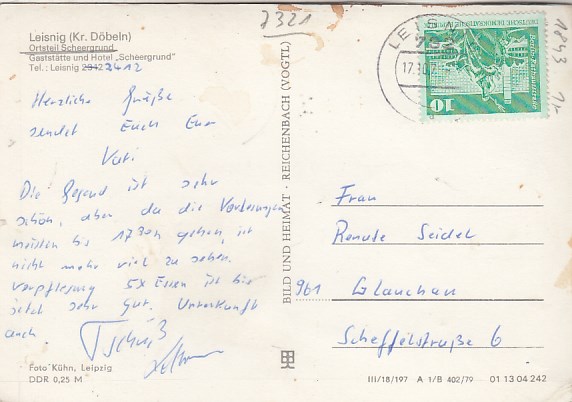 7321
1843
Leisnig (Kr. Döbeln)
Ortsteil Scheergrund
Gaststätte und Hotel „Scheergrund"
Tel.: Leisnig 2942 2412
Herzliche Grüße
sendet Euch Euer
Vati.
Die Gegend ist sehr
schön, aber da die Vorlesungen
meisten bis 1730h gehen, ist
nicht mehr viel zu sehen.
Verpflegung 5x Essen ist bis
jetzt sehr gut. Unterkunft
auch.
Tschüß
Foto Kühn, Leipzig
DDR 0,25 M
BILD UND HEIMAT · REICHENBACH (VOGTL)
LEISNIG
17.10.7
DEUTSCHE DEMOKRATISCHE REPUBLIK
10
Frau
Renate Seidel
961 Glauchau
Scheffelstraße 6
III/18/197 A 1/B 402/79 01 13 04 242